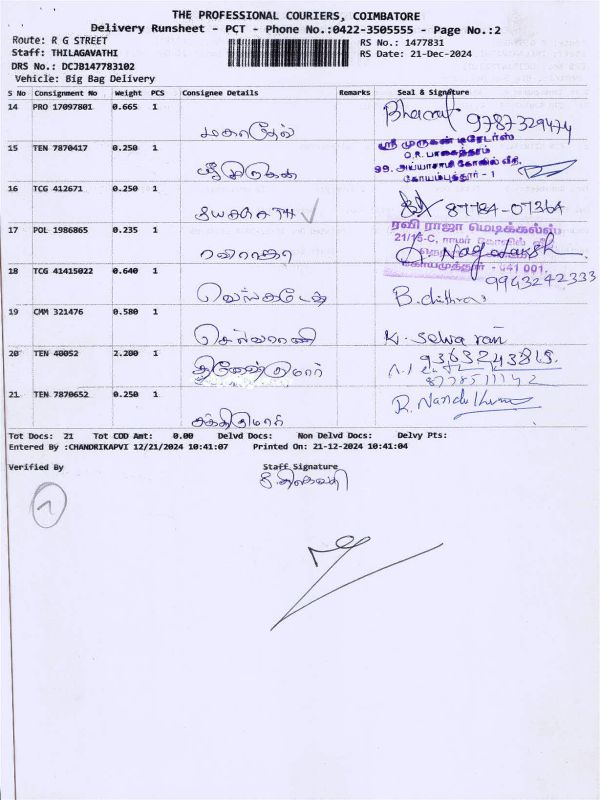 THE PROFESSIONAL COURIERS, COIMBATORE
Delivery Runsheet - PCT - Phone No.:0422-3505555 - Page No.:2
Route: R G STREET
RS No.: 1477831
Staff: THILAGAVATHI
RS Date: 21-Dec-2024
DRS No.: DCJB147783102
Vehicle: Big Bag Delivery
S No Consignment No Weight PCS Consignee Details Remarks Seal & Signature
14 PRO 17097801 0.665 1 Bharat 9787329474
மகாதேவ்
15 TEN 7870417 0.250 1 ஸ்ரீ முருகன் டிரேடர்ஸ்
O.R. பாகைத்தரம்
ஸ்ரீமுருகன் 99, அய்யாசாமி கோவில் வீதி,
கோயம்புத்தூர் - 1
16 TCG 412671 0.250 1 87784-07364
17 POL 1986865 0.235 1 ரவி ராஜா மெடிக்கல்ஸ்
21/15-C, ராமர் கோவில் வீதி
ரவிராஜா A. Nagadarsh
கோயமுத்தூர் - 641 001.
18 TCG 41415022 0.640 1 9943242333
வெங்கடேஷ் B. chithra
19 CMM 321476 0.580 1
செல்வராணி K. Selva rani
20 TEN 40052 2.200 1 9363243818
தினேஷ்குமார் 8778511142
21 TEN 7870652 0.250 1 R. Nandhkumar
சக்திகுமார்
Tot Docs: 21 Tot COD Amt: 0.00 Delvd Docs: Non Delvd Docs: Delvy Pts:
Entered By :CHANDRIKAPVI 12/21/2024 10:41:07 Printed On: 21-12-2024 10:41:04
Verified By Staff Signature
S. திலகவதி